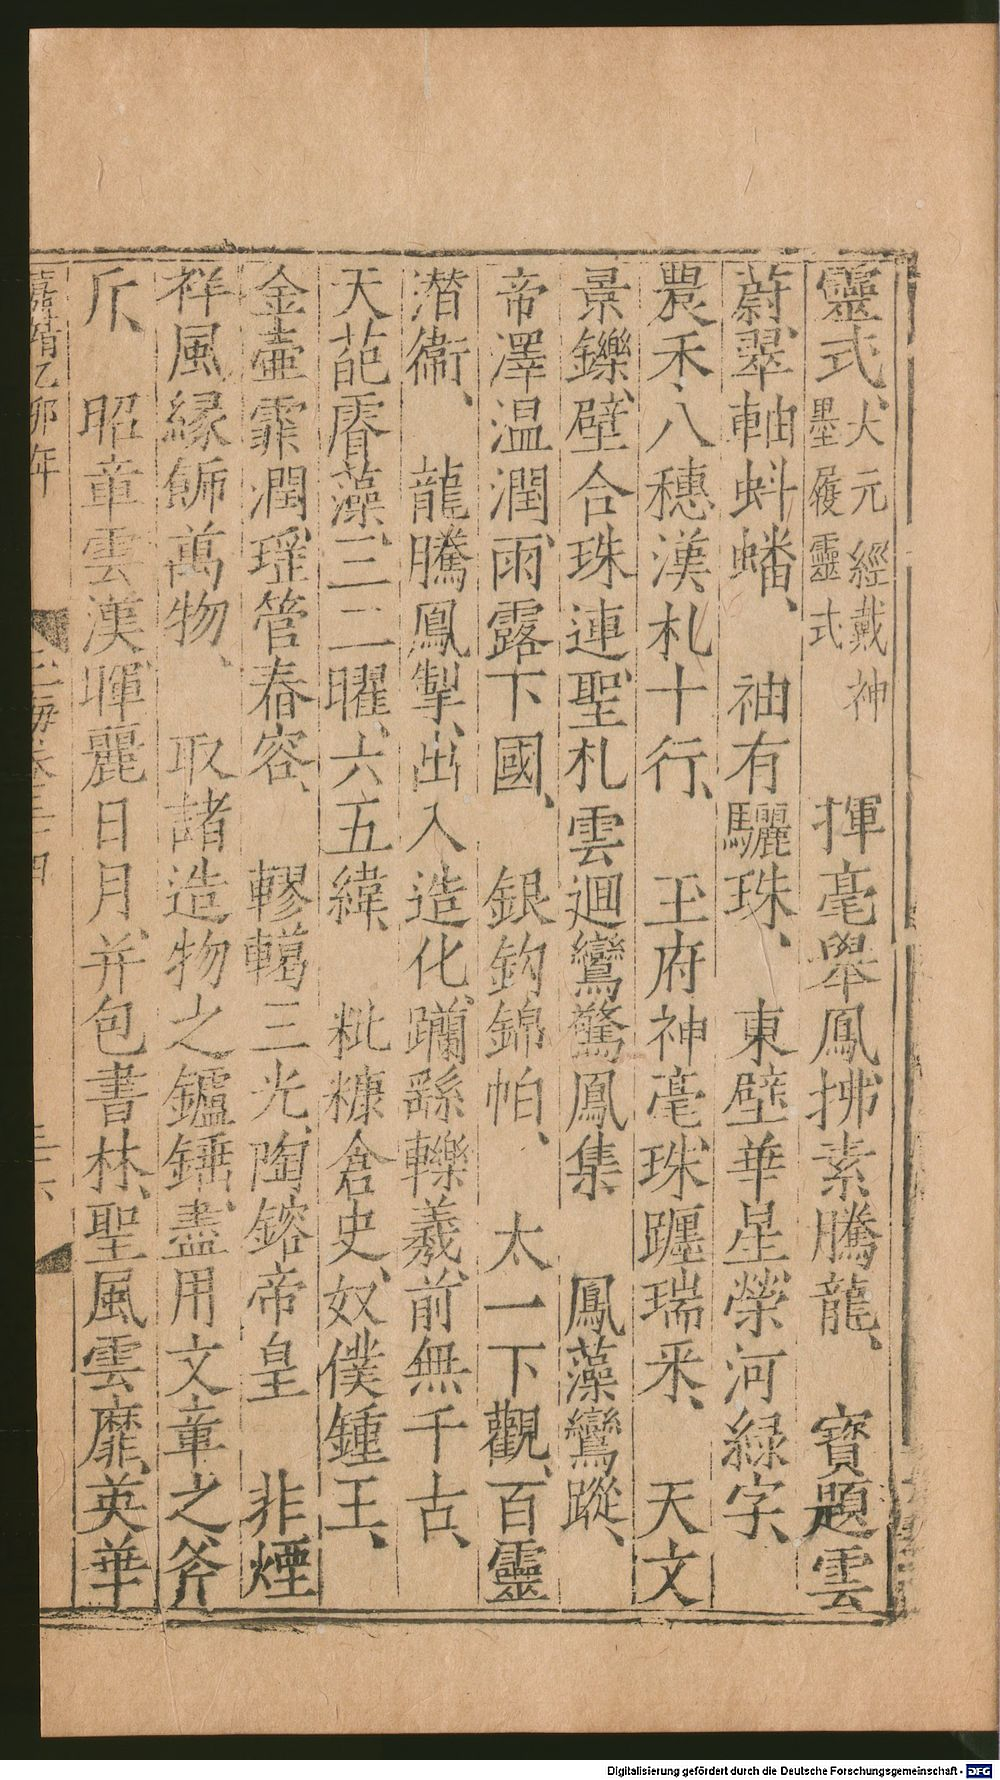 靈式、犬元經戴神墨履靈式 揮毫舉鳳拂素騰龍、 寶題雲
蔚、翠軸蚪蟠、 袖有驪珠、 東壁華星榮河緑字、
農禾、八穗漢札十行、 玉府神毫、珠躔瑞采、 天文
景鑠、壁合珠連聖札雲迴鸞驚鳳集 鳳藻鸞蹤、
帝澤温潤雨露下國、 銀鈎錦帕、 太一下觀、百靈
潜衞、 龍騰鳳掣、出入造化、躪繇轢羲、前無千古、
天葩脣藻、三二曜、六五緯、 粃糠倉史、奴僕鍾王、
金壷霏潤、瑶管春容、 轇轕三光、陶鎔帝皇 非煙
祥風縁餙萬物、 取諸造物之鑪錘、盡用文章之斧
斤、 昭章雲漢、暉麗日月、并包書林、聖風雲靡、英華
嘉靖乙卯年 玉海卷三十四 三六
Digitalisierung gefördert durch die Deutsche Forschungsgemeinschaft - DFG